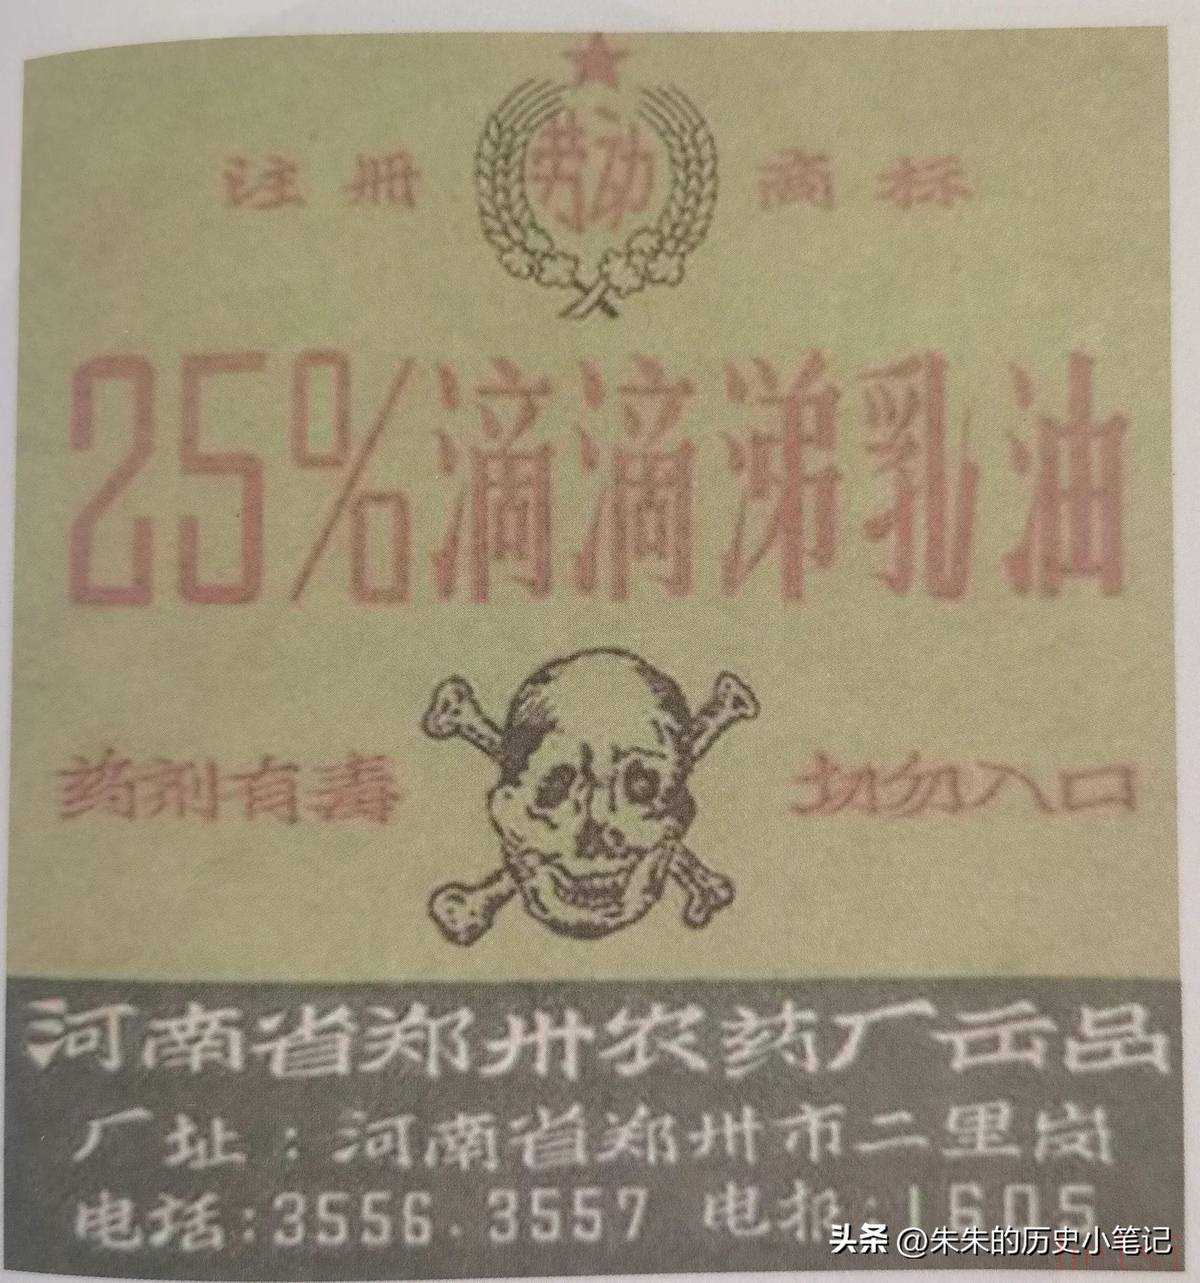 注册 劳动 商标
25%滴滴涕乳油
药剂有毒 切勿入口
河南省郑州农药厂出品
厂址：河南省郑州市二里岗
电话:3556.3557 电报:1605
头条 @朱朱的历史小笔记